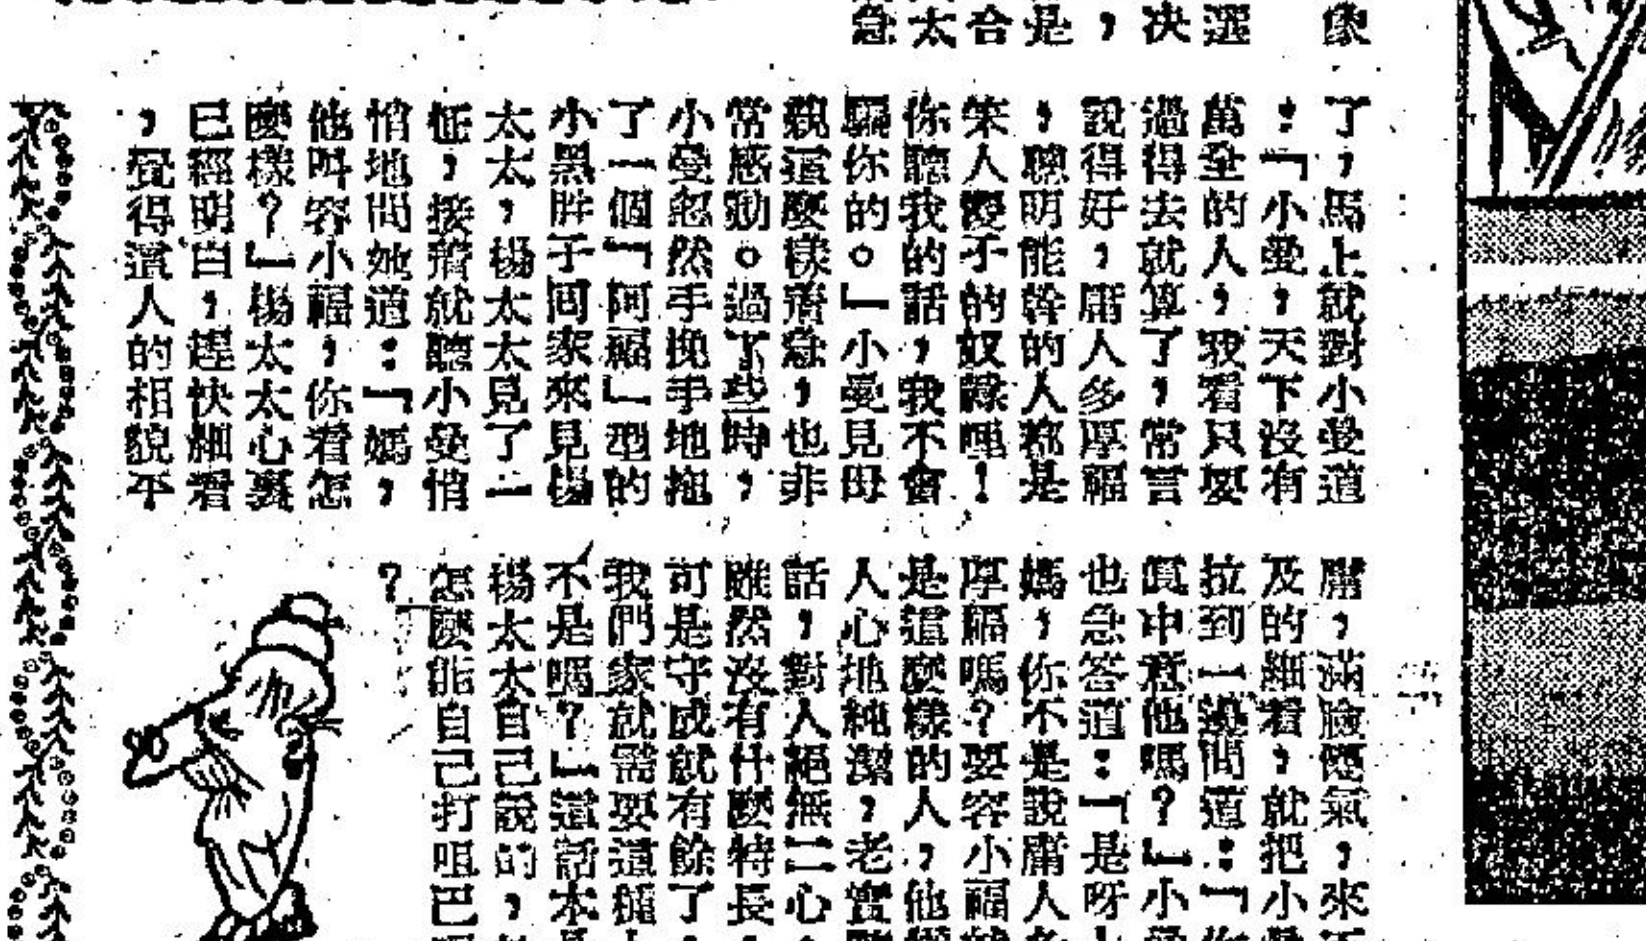 像
選
决
，
是
合
太
急
了，馬上就對小曼道
：「小曼，天下沒有
萬全的人，我看只要
過得去就算了，常言
說得好，庸人多厚福
，聰明能幹的人都是
笨人優子的奴隸哩！
你聽我的話，我不會
騙你的。」小曼見母
親這麼樣着急，也非
常感動。過了些時，
小曼忽然手挽手地拖
了一個「阿福」型的
小黑胖子同家來見楊
太太，楊太太見了一
怔，接着就聽小曼悄
悄地問她道：「媽，
他叫容小福，你看怎
麼樣？」楊太太心裏
已經明白，趕快細看
，覺得這人的相貌平
庸，滿臉 氣，來不
及的細看，就把小
拉到一邊問道：「你
真中意他嗎？」小曼
也急答道：「是呀
媽，你不是說庸人多
厚福嗎？要容小福
是這麼樣的人，他
人心地純潔，老實
話，對人絕無二心，
雖然沒有什麼特長，
可是守成就有餘了，
我們家就需要這種
不是嗎？」這話本
楊太太自己說的，
怎麼能自己打咀巴
？